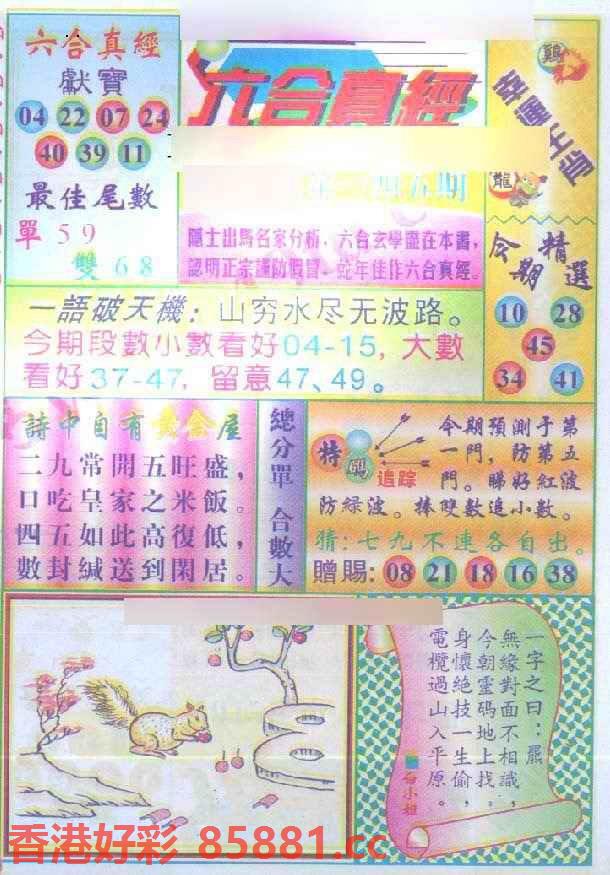 六合真經
獻寶
04 22 07 24
40 39 11
最佳尾數
單 59
雙 68
六合真經
四五期
隱士出馬名家分析，六合玄學盡在本書，
認明正宗謹防假冒，蛇年佳作六合真經。
鷄
龍
今期精選
10 28
45
34 41
一語破天機：山穷水尽无波路。
今期段數小數看好04-15，大數
看好37-47，留意47、49。
詩中自有黄金屋
二九常開五旺盛，
口吃皇家之米飯。
四五如此高復低，
數封緘送到閑居。
總分單 合數大
特碼
追踪
今期預測于第
一門，防第五
門。睇好紅波
防緑波。捧雙數追小數。
猜:七九不連各自出。
贈賜: 08 21 18 16 38
一字之曰：羆
無緣對面不相識，
今朝靈碼地上找，
身懷絶技一生偷，
電欖過山入平原。
白小姐
香港好彩 85881.cc